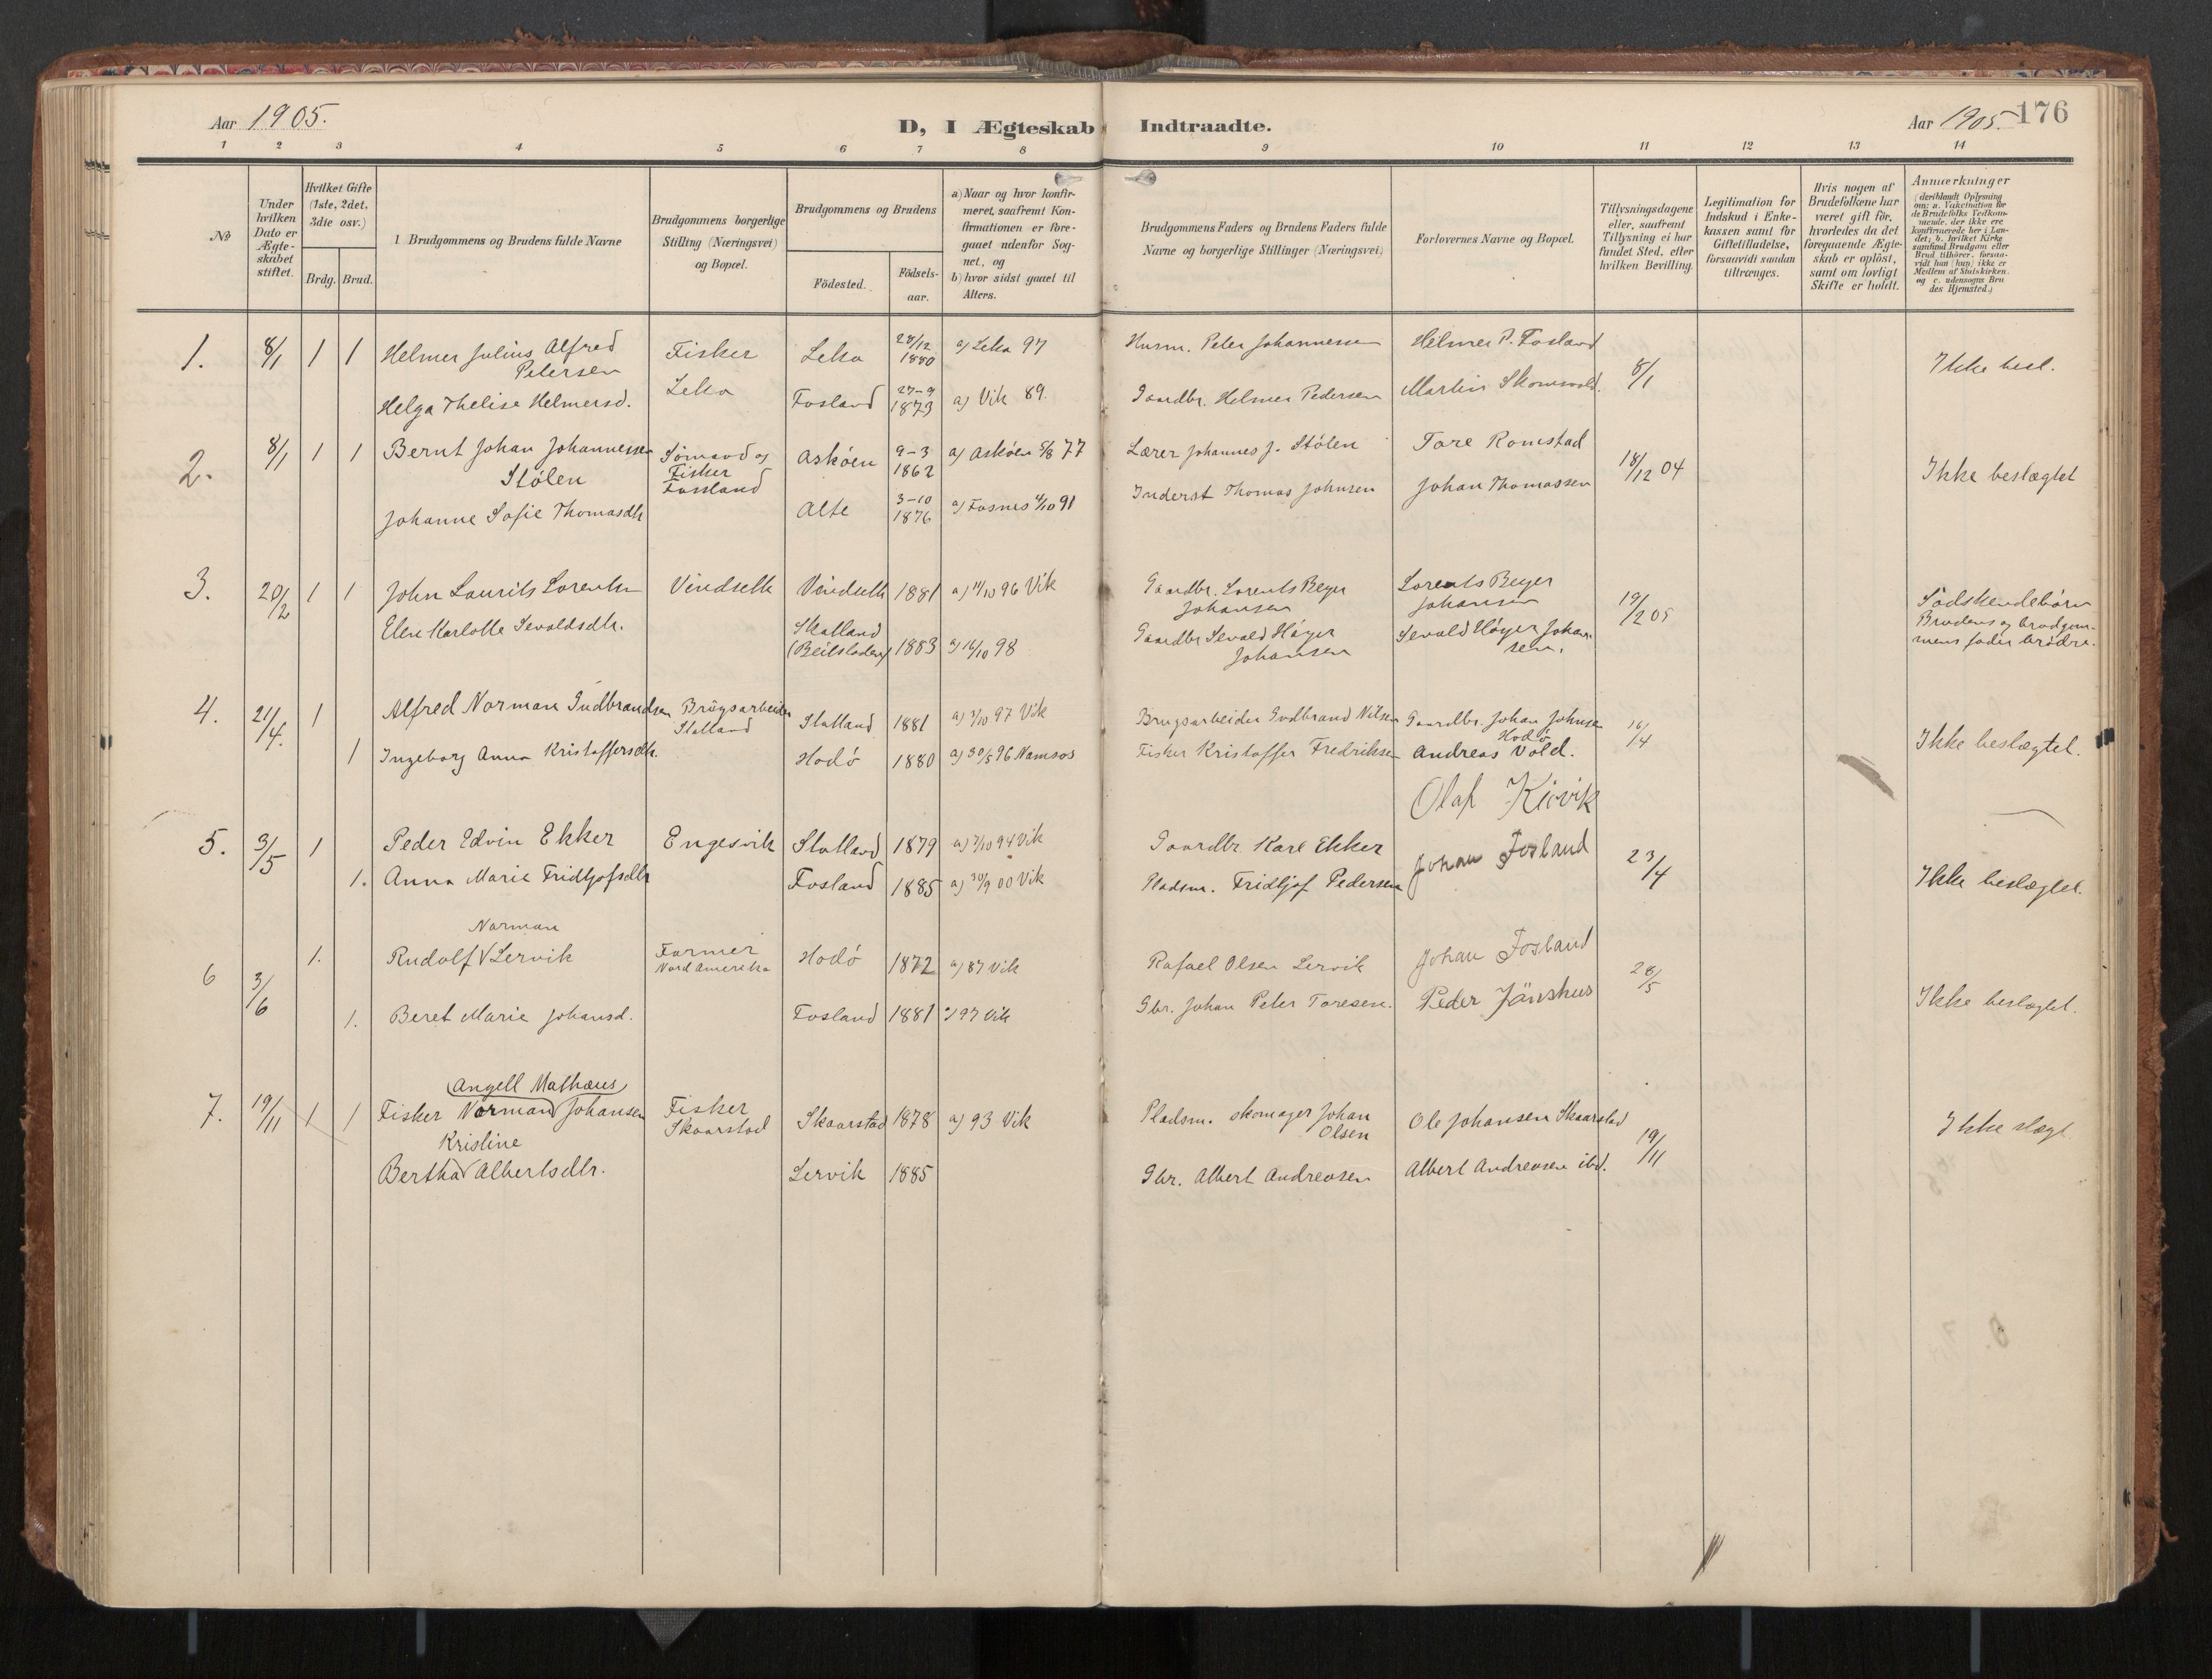 Aar 1905.
D, I Ægteskab Indtraadte.
Aar 1905. 176
1 2 3 4 5 6 7 8 9 10 11 12 13 14
No
Under hvilken Dato er Ægteskabet stiftet.
Hvilket Gifte (1ste, 2det, 3die osv.)
Brdg. Brud.
1. Brudgommens og Brudens fulde Navne
Brudgommens borgerlige Stilling (Næringsvei) og Bopæl.
Brudgommens og Brudens
Födested.
Födsels-aar.
a) Naar og hvor konfirmeret, saafremt Konfirmationen er foregaaet udenfor Sognet, og
b) hvor sidst gaaet til Alters.
Brudgommens Faders og Brudens Faders fulde Navne og borgerlige Stillinger (Næringsvei)
Forlovernes Navne og Bopæl.
Tillysningsdagene eller, saafremt Tillysning ei har fundet Sted, efter hvilken Bevilling.
Legitimation for Indskud i Enkekassen samt for Giftetilladelse, forsaavidt saadan tiltrænges.
Hvis nogen af Brudefolkene har været gift för, hvorledes da det foregaaende Ægteskab er oplöst, samt om lovligt Skifte er holdt.
Anmærkninger
(deriblandt Oplysning om: a. Vakcination for de Brudefolks Vedkommende, der ikke ere konfirmerede her i Landet; b. hvilket Kirkesamfund Brudgom eller Brud tilhörer, forsaavidt han (hun) ikke er Medlem af Statskirken. og c. udensogns Brudes Hjemsted.)
1. 8/1 1 1 Helmer Julius Alfred Petersen Fisker Leka Leka 28/12 1880 a) Leka 97 Husm. Peter Johannessen Helmer P. Fosland 8/1 Ikke besl.
Helga Thelise Helmersd. Fosland 27-9 1873 a) Vik 89. Gaardbr. Helmer Pedersen Martin Skomsvold.
2. 8/1 1 1 Bernt Johan Johannessen Stölen Sömand og Fisker Fossland Asköen 9-3 1862 a) Asköen 5/8 77 Lærer Johannes J. Stölen Tore Romstad 18/12 04 Ikke beslægtet
Johanne Sofie Thomasdtr Alte 3-10 1876 a) Fosnes 4/10 91 Inderst Thomas Johnsen Johan Thomassen
3. 20/2 1 1 John Laurits Lorentsn Vindseth Vindseth 1881 a) 11/10 96 Vik Gaardbr. Lorents Beyer Johansen Lorents Beyer Johansen 19/2 05 Södskendebörn Brudens og brudgommens fader brödre.
Elen Karlotte Sevaldsdtr. Statland (Beitstaden) 1883 a) 16/10 98 Gaardbr Sevald Höyer Johansen Sevald Höyer Johansen.
4. 21/4. 1 Alfred Norman Gudbrandsen Brugsarbeider Statland Statland 1881 a) 3/10 97 Vik Brugsarbeider Gudbrand Nilsen Gaardbr. Johan Johnsen Hodö 16/4 Ikke beslægtet.
1 Ingeborg Anna Kristoffersdtr. Hodö 1880 a) 30/5 96 Namsos Fisker Kristoffer Fredriksen Andreas Vold.
5. 3/5 1 Peder Edvin Ekker Engesvik Statland 1879 a) 7/10 94 Vik Gaardbr. Karl Ekker Olaf Kirvik 23/4 Ikke beslægtet.
1. Anna Marie Fridtjofsdtr Fosland 1885 a) 30/9 00 Vik Pladsm. Fridtjof Pedersen Johan Fosland
6 3/6 1. Rudolf Norman Lervik Farmer Nord Amerika Hodö 1872 a) 87 Vik Rafael Olsen Lervik Johan Fosland 28/5 Ikke beslægtet.
1. Beret Marie Johansd. Fosland 1881 a) 97 Vik Gbr. Johan Peter Toresen. Peder Jänshus
7. 19/11 1 1 Fisker Norman (Angell Mathæus) Johansen Fisker Skaarstad Skaarstad 1878 a) 93 Vik Pladsm. skomager Johan Olsen Ole Johansen Skaarstad 19/11 Ikke slægt.
Bertha Kristine Albertsdtr. Lervik 1885 Gbr. Albert Andreasen Albert Andreasen ibd.